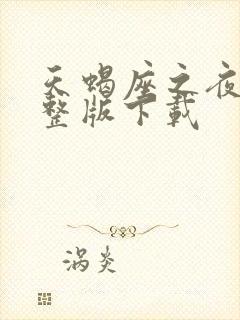 天蝎座之夜
整版下载
涡炎